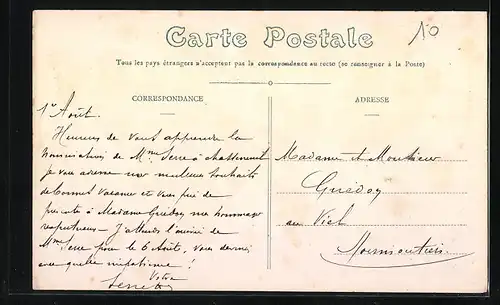 Carte Postale
10
Tous les pays étrangers n'acceptent pas la correspondance au recto (se renseigner à la Poste)
CORRESPONDANCE
ADRESSE
1er Août.
Heureux de vous apprendre la
nomination de Mme Serre à
je vous adresse mes meilleurs souhaits
de bonnes vacances et vous prie de
présenter à Madame Guédoy mes hommages
respectueux - J'attends l'arrivée de
Mme Serre pour le 6 Août, vous devinez
avec quelle impatience!
Votre
Serre
Madame et Monsieur
Guédoy
au Viel